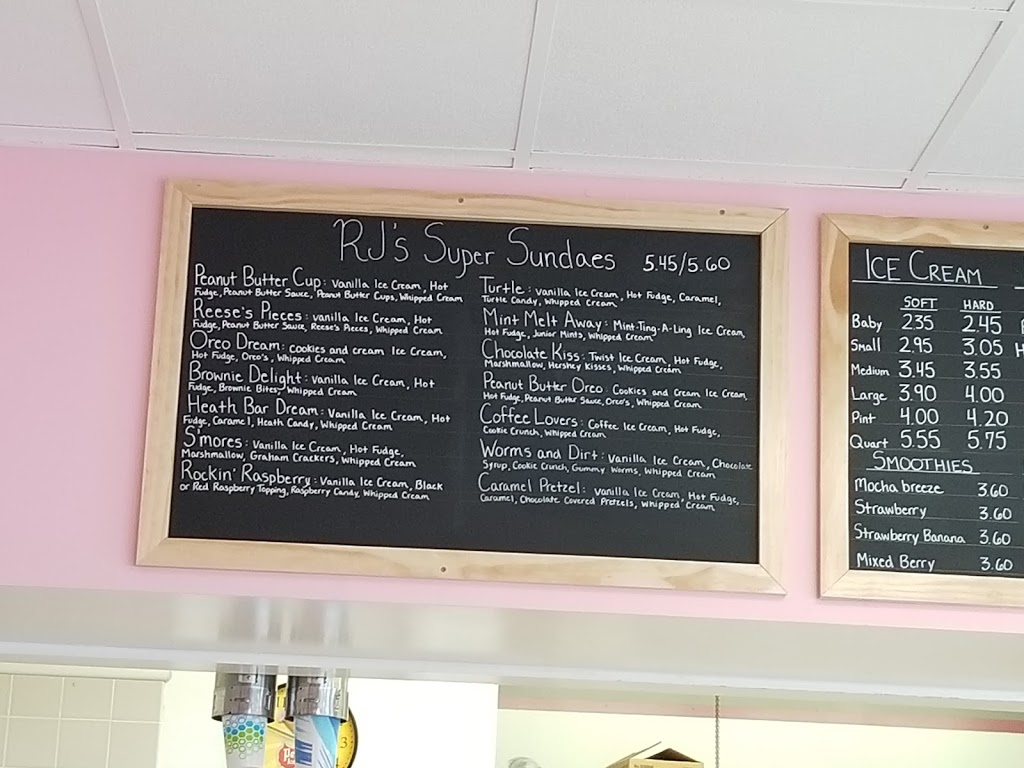 RJ's Super Sundaes 5.45/5.60
Peanut Butter Cup: Vanilla Ice Cream, Hot
Fudge, Peanut Butter Sauce, Peanut Butter Cups, Whipped Cream
Reese's Pieces: Vanilla Ice Cream, Hot
Fudge, Peanut Butter Sauce, Reese's Pieces, Whipped Cream
Oreo Dream: Cookies and Cream Ice Cream,
Hot Fudge, Oreo's, Whipped Cream
Brownie Delight: Vanilla Ice Cream, Hot
Fudge, Brownie Bites, Whipped Cream
Heath Bar Dream: Vanilla Ice Cream, Hot
Fudge, Caramel, Heath Candy, Whipped Cream
S'mores: Vanilla Ice Cream, Hot Fudge,
Marshmallow, Graham Crackers, Whipped Cream
Rockin' Raspberry: Vanilla Ice Cream, Black
or Red Raspberry Topping, Raspberry Candy, Whipped Cream
Turtle: Vanilla Ice Cream, Hot Fudge, Caramel,
Turtle Candy, Whipped Cream
Mint Melt Away: Mint-Ting-A-Ling Ice Cream,
Hot Fudge, Junior Mints, Whipped Cream
Chocolate Kiss: Twist Ice Cream, Hot Fudge,
Marshmallow, Hershey Kisses, Whipped Cream
Peanut Butter Oreo: Cookies and Cream Ice Cream,
Hot Fudge, Peanut Butter Sauce, Oreo's, Whipped Cream
Coffee Lovers: Coffee Ice Cream, Hot Fudge,
Cookie Crunch, Whipped Cream
Worms and Dirt: Vanilla Ice Cream, Chocolate
Syrup, Cookie Crunch, Gummy Worms, Whipped Cream
Caramel Pretzel: Vanilla Ice Cream, Hot Fudge,
Caramel, Chocolate Covered Pretzels, Whipped Cream
ICE CREAM
SOFT HARD
Baby 2.35 2.45
Small 2.95 3.05
Medium 3.45 3.55
Large 3.90 4.00
Pint 4.00 4.20
Quart 5.55 5.75
SMOOTHIES
Mocha breeze 3.60
Strawberry 3.60
Strawberry Banana 3.60
Mixed Berry 3.60